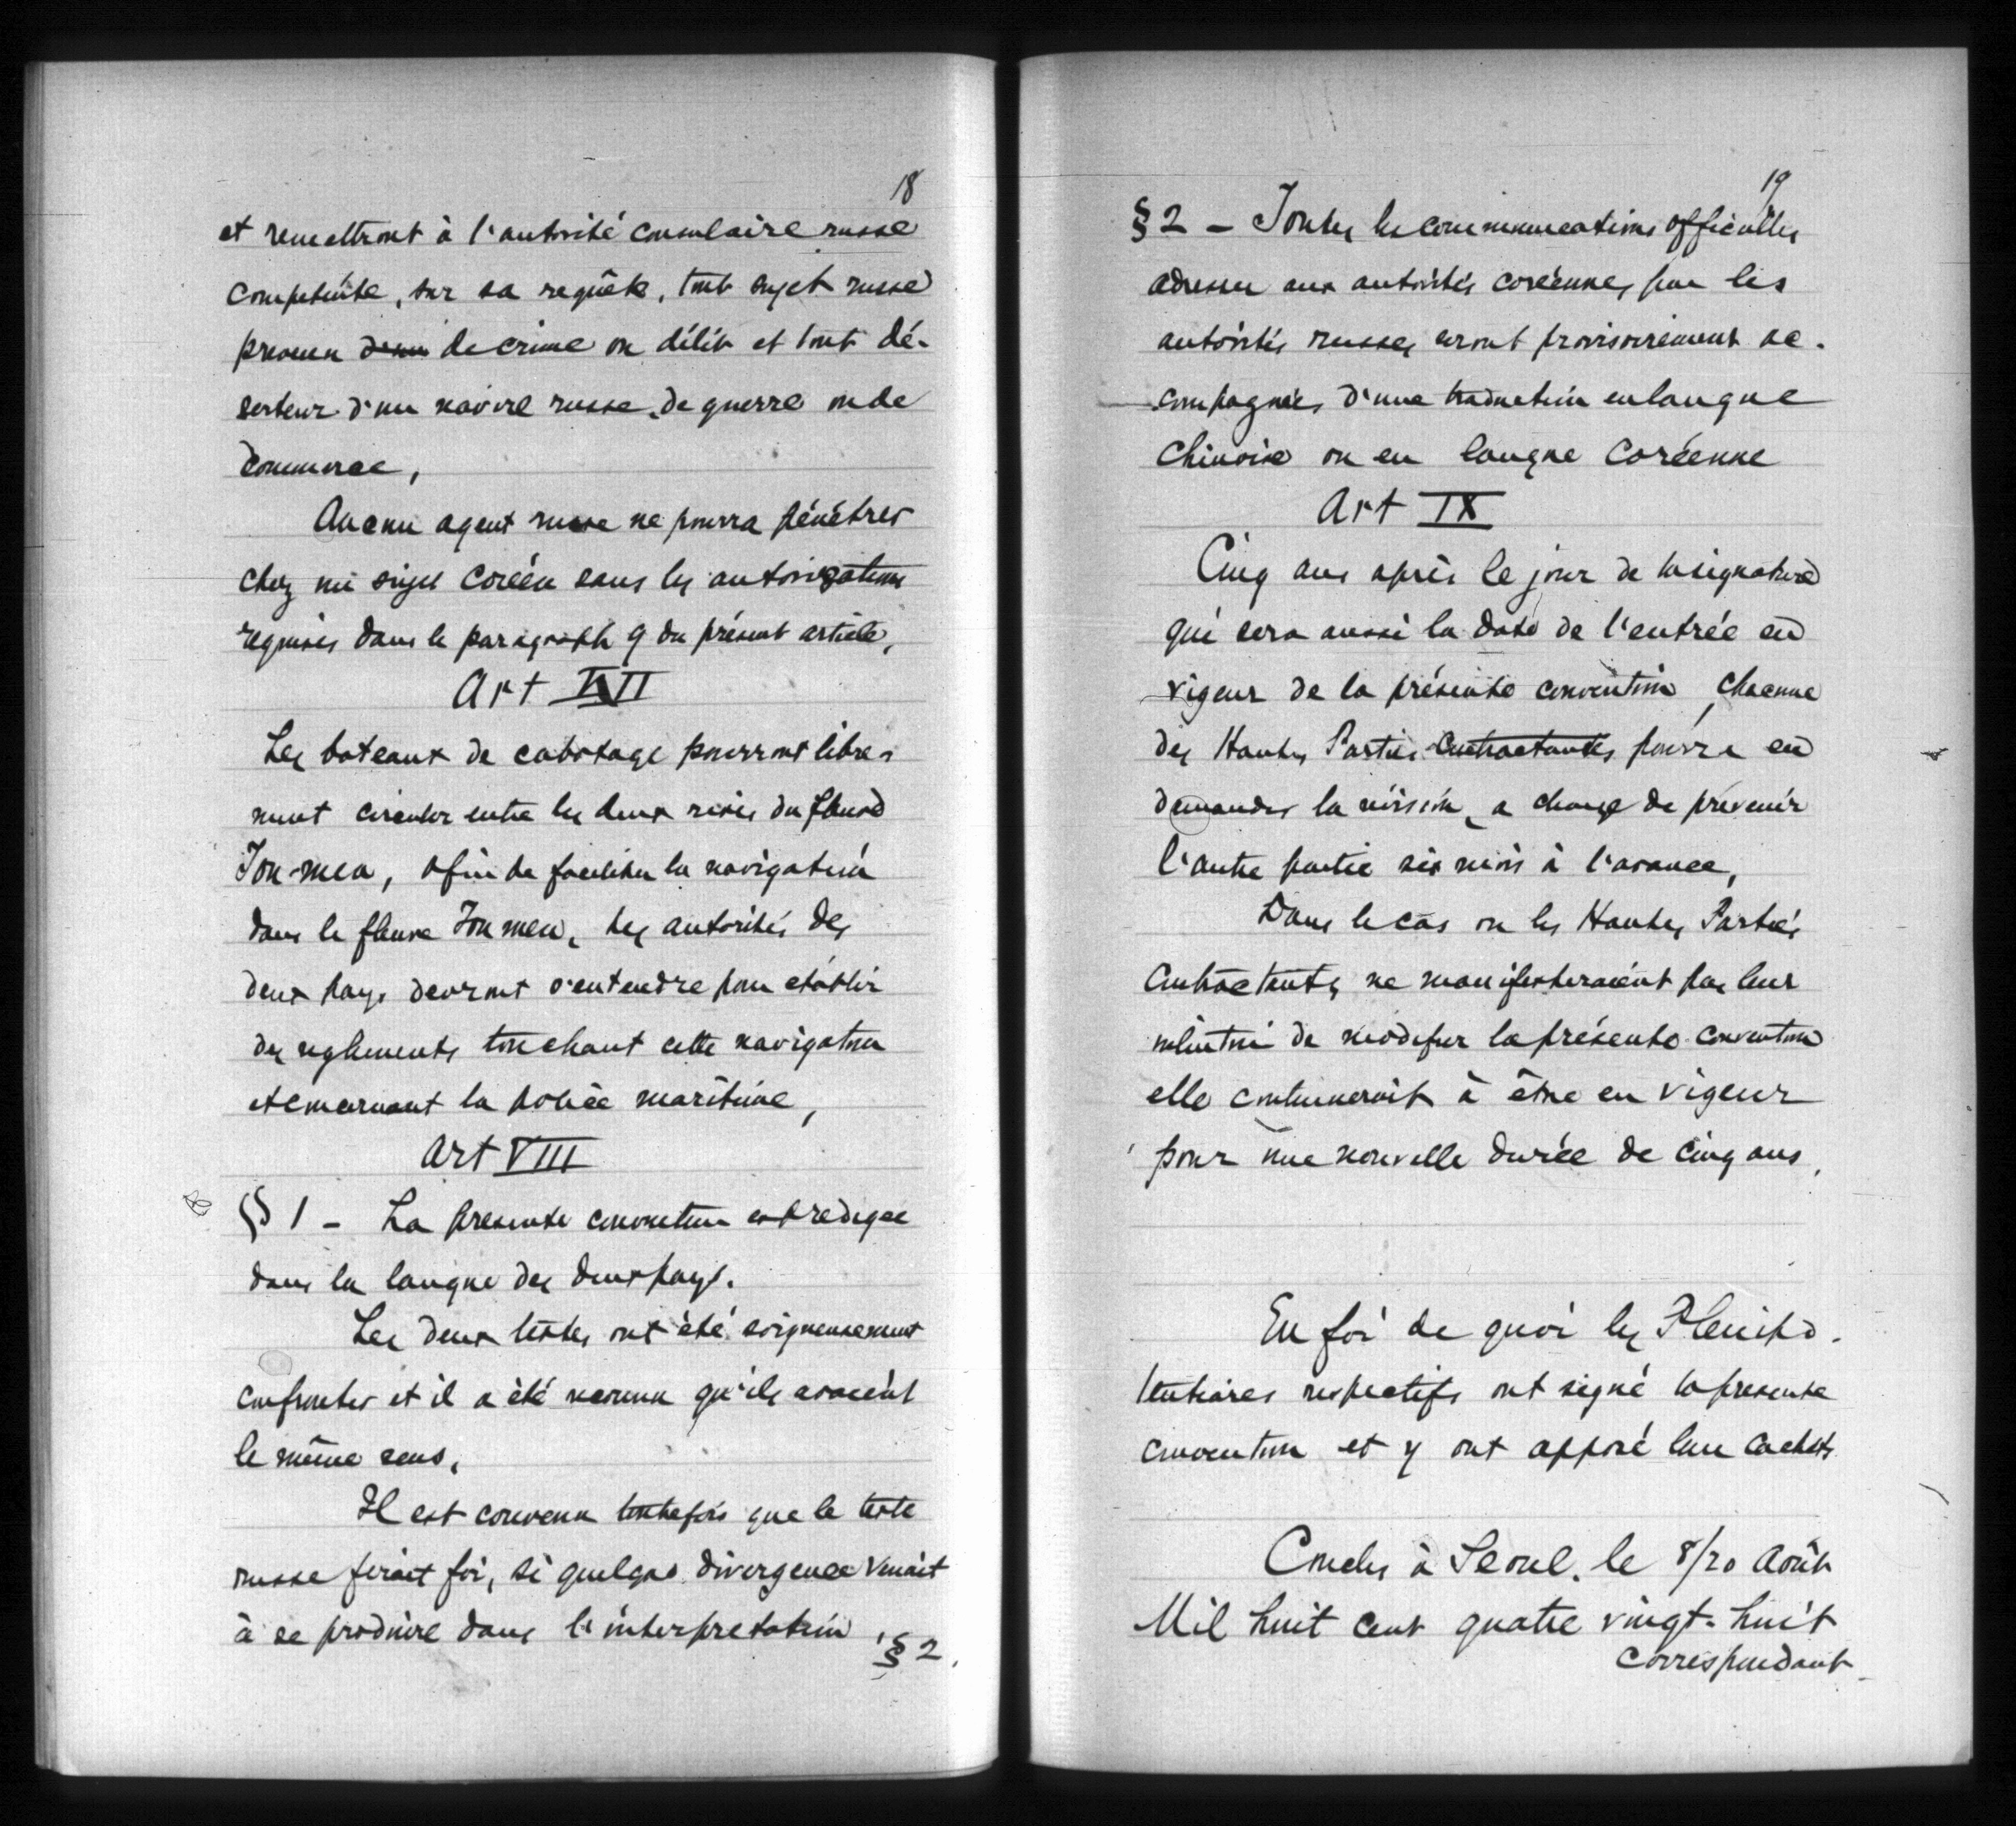 18
et remettront à l'autorité consulaire russe
compétente, sur sa requête, tout sujet russe
prévenu de crime ou délit et tout dé-
serteur d'un navire russe de guerre ou de
commerce,
Aucun agent russe ne pourra pénétrer
chez un sujet coréen sans les autorisations
requises dans le paragraph 9 du présent article,
Art VII
Les bateaux de cabotage pourront libre-
ment circuler entre les deux rives du fleuve
Tou-men, afin de faciliter la navigation
dans le fleuve Toumen, les autorités des
deux pays devront s'entendre pour établir
des reglements touchant cette navigation
et concernant la police maritime,
Art VIII
§ 1 - La presente convention est redigee
dans la langue des deux pays.
Les deux textes ont été soigneusement
confrontés et il a été reconnu qu'ils avaient
le même sens,
Il est convenu toutefois que le texte
russe ferait foi, si quelque divergence venait
à se produire dans l'interpretation
§ 2,
19
§ 2 - Toutes les communications officielles
adressées aux autorités coréennes par les
autorités russes seront provisoirement ac-
compagnées d'une traduction en langue
chinoise ou en langue coréenne
Art IX
Cinq ans après le jour de la signature
qui sera aussi la date de l'entrée en
vigeur de la présente convention, chacune
des Hautes Parties Contractantes pourra en
demander la révision, a charge de prévenir
l'autre partie six mois à l'avance,
Dans le cas ou les Hautes Parties
Contractantes ne manifesteraient pas leur
intention de modifier la présente convention
elle continuerait à être en vigeur
pour une nouvelle durée de cinq ans,
En foi de quoi les Plénipo-
tentiaires respectifs ont signé la presente
convention et y ont apposé leur cachets
Conclu à Seoul, le 8/20 Août
Mil huit cent quatre vingt-huit
correspondant